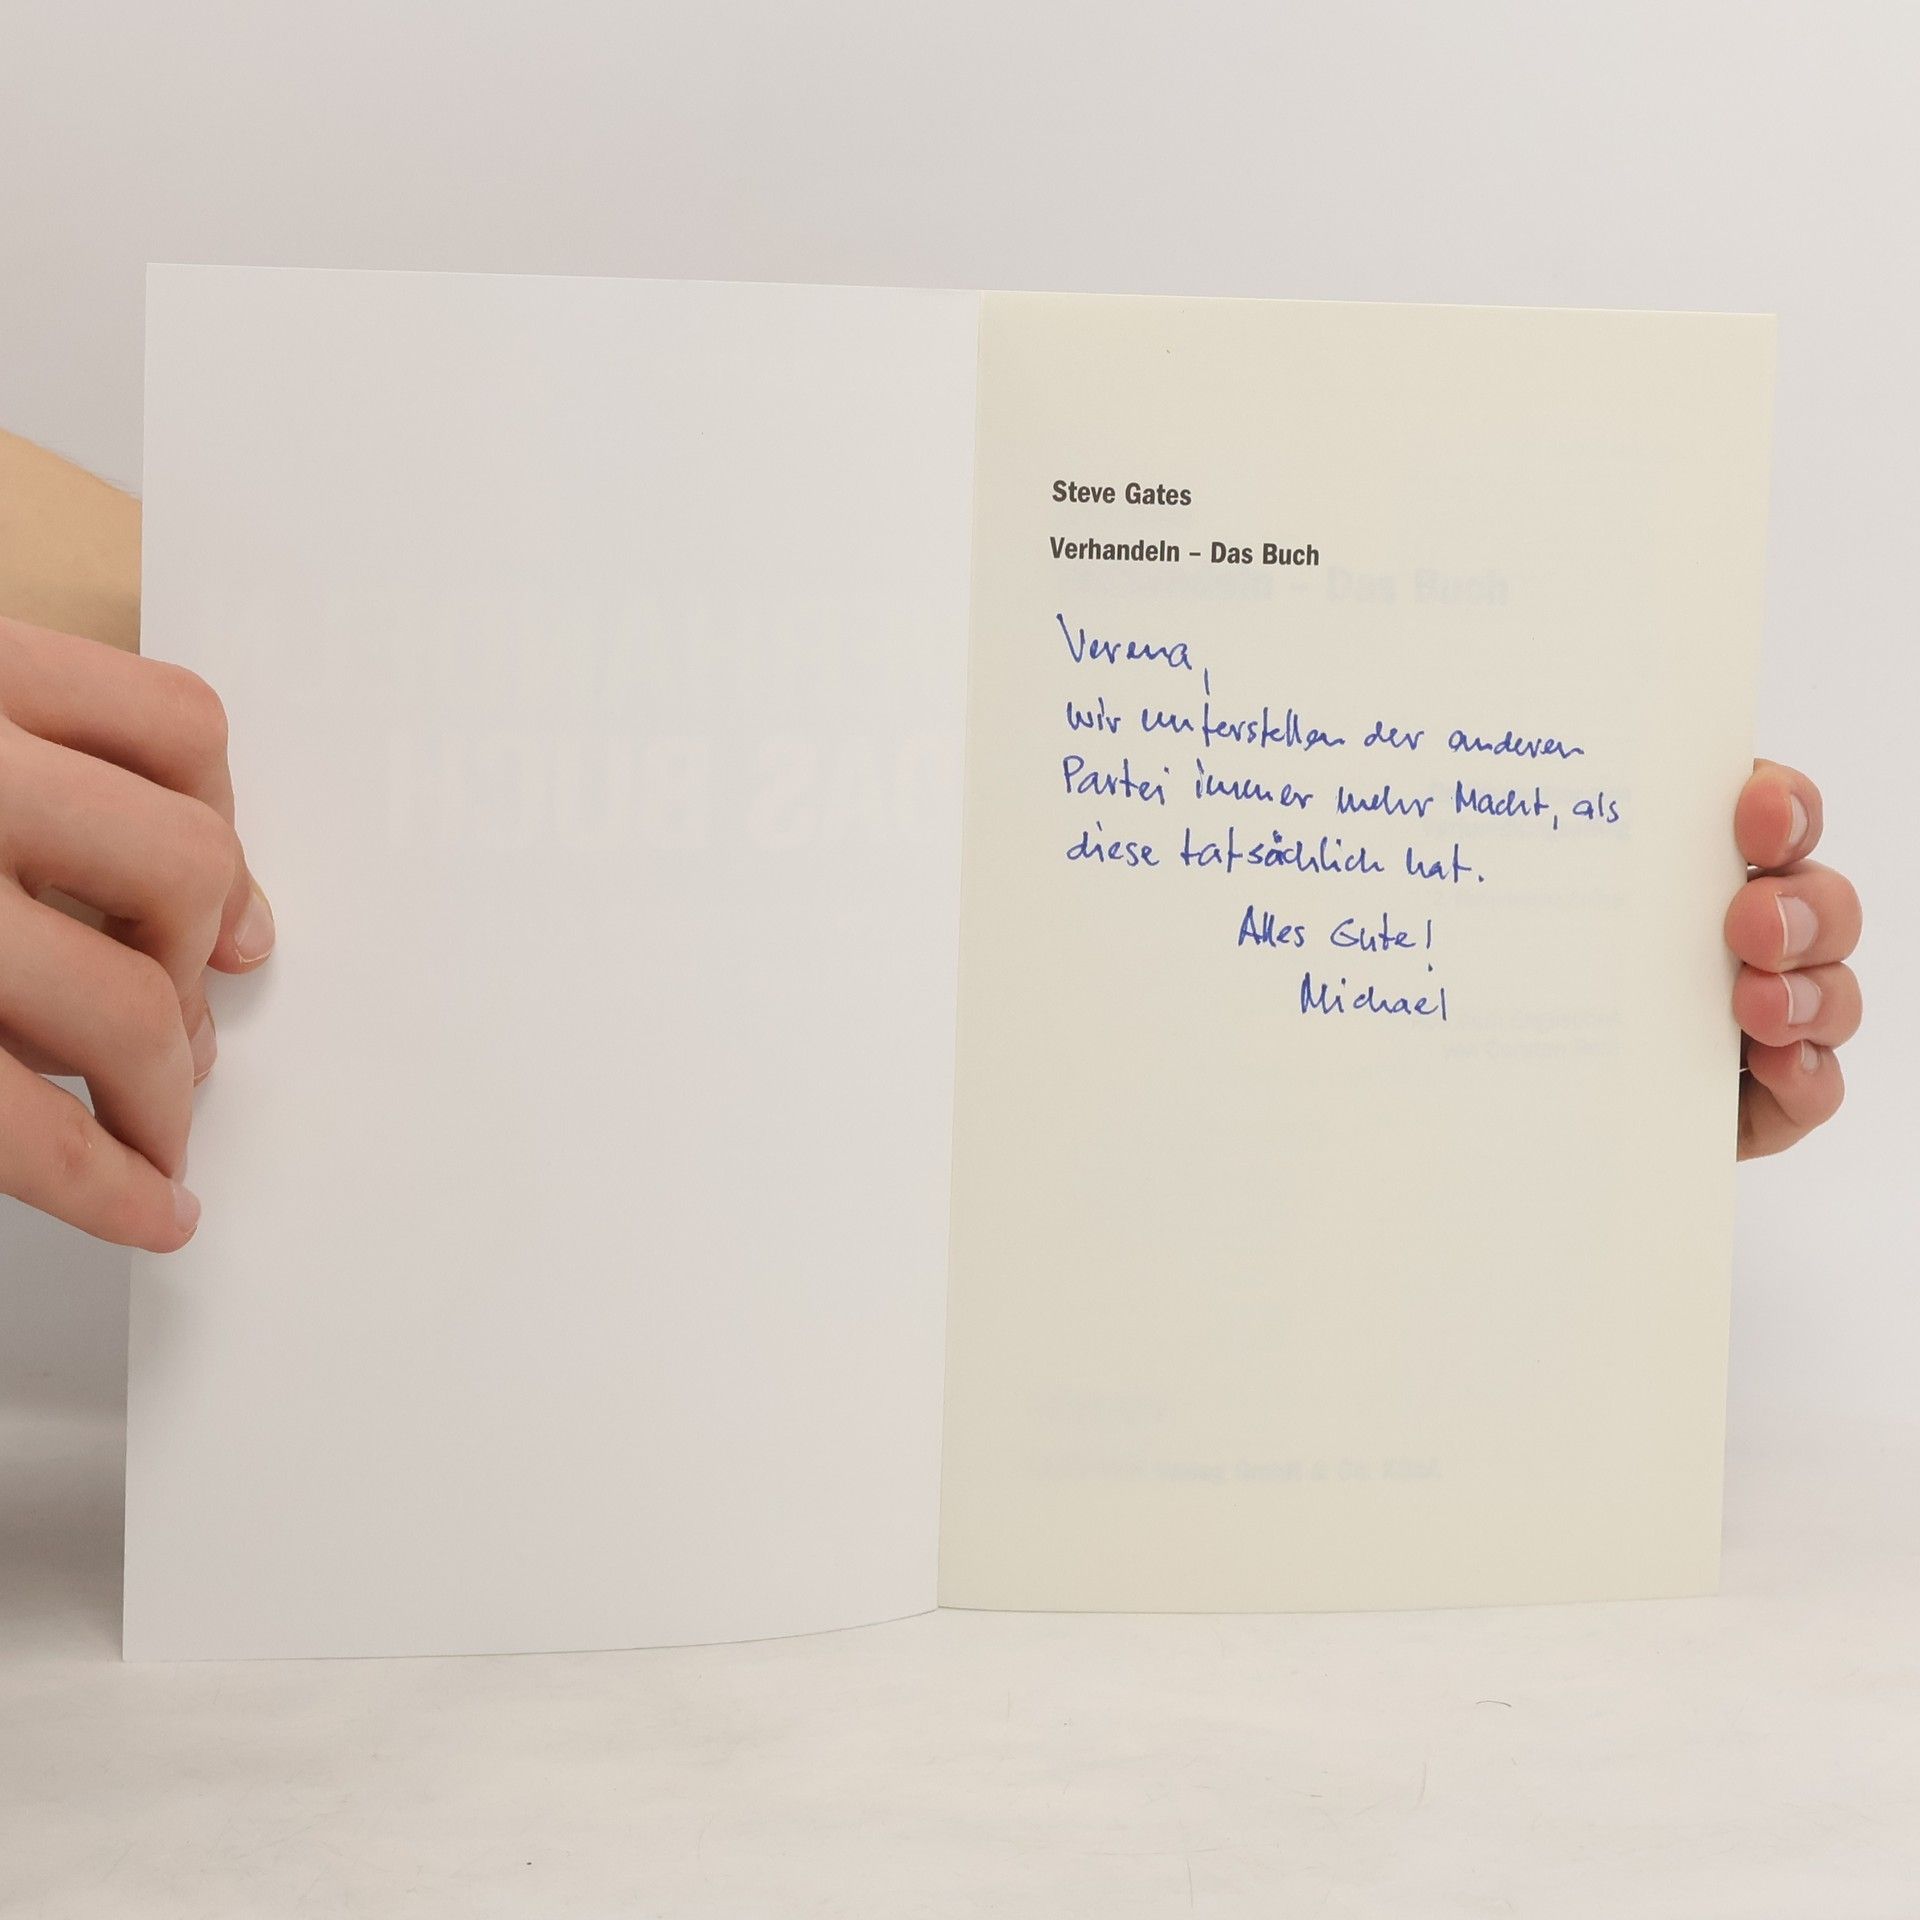 Steve Gates
Verhandeln – Das Buch
Verena,
wir unterstellen der anderen
Partei immer mehr Macht, als
diese tatsächlich hat.
Alles Gute!
Michael
– Das Buch